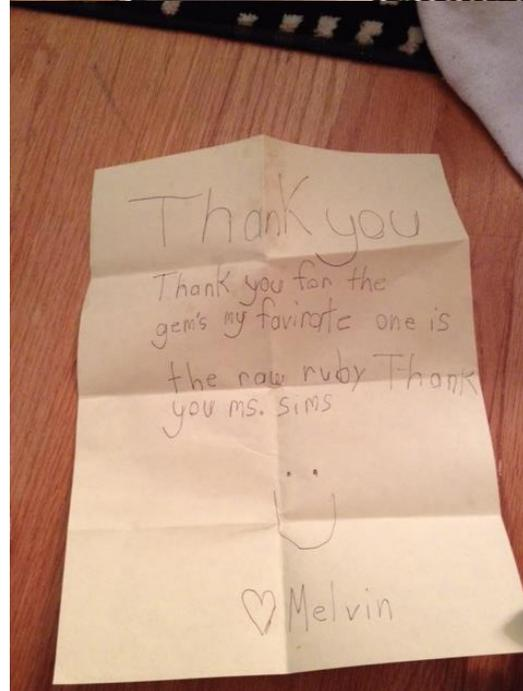 Thank you
Thank you for the
gem's my favirate one is
the raw ruby Thank
you ms. sims
♡ Melvin